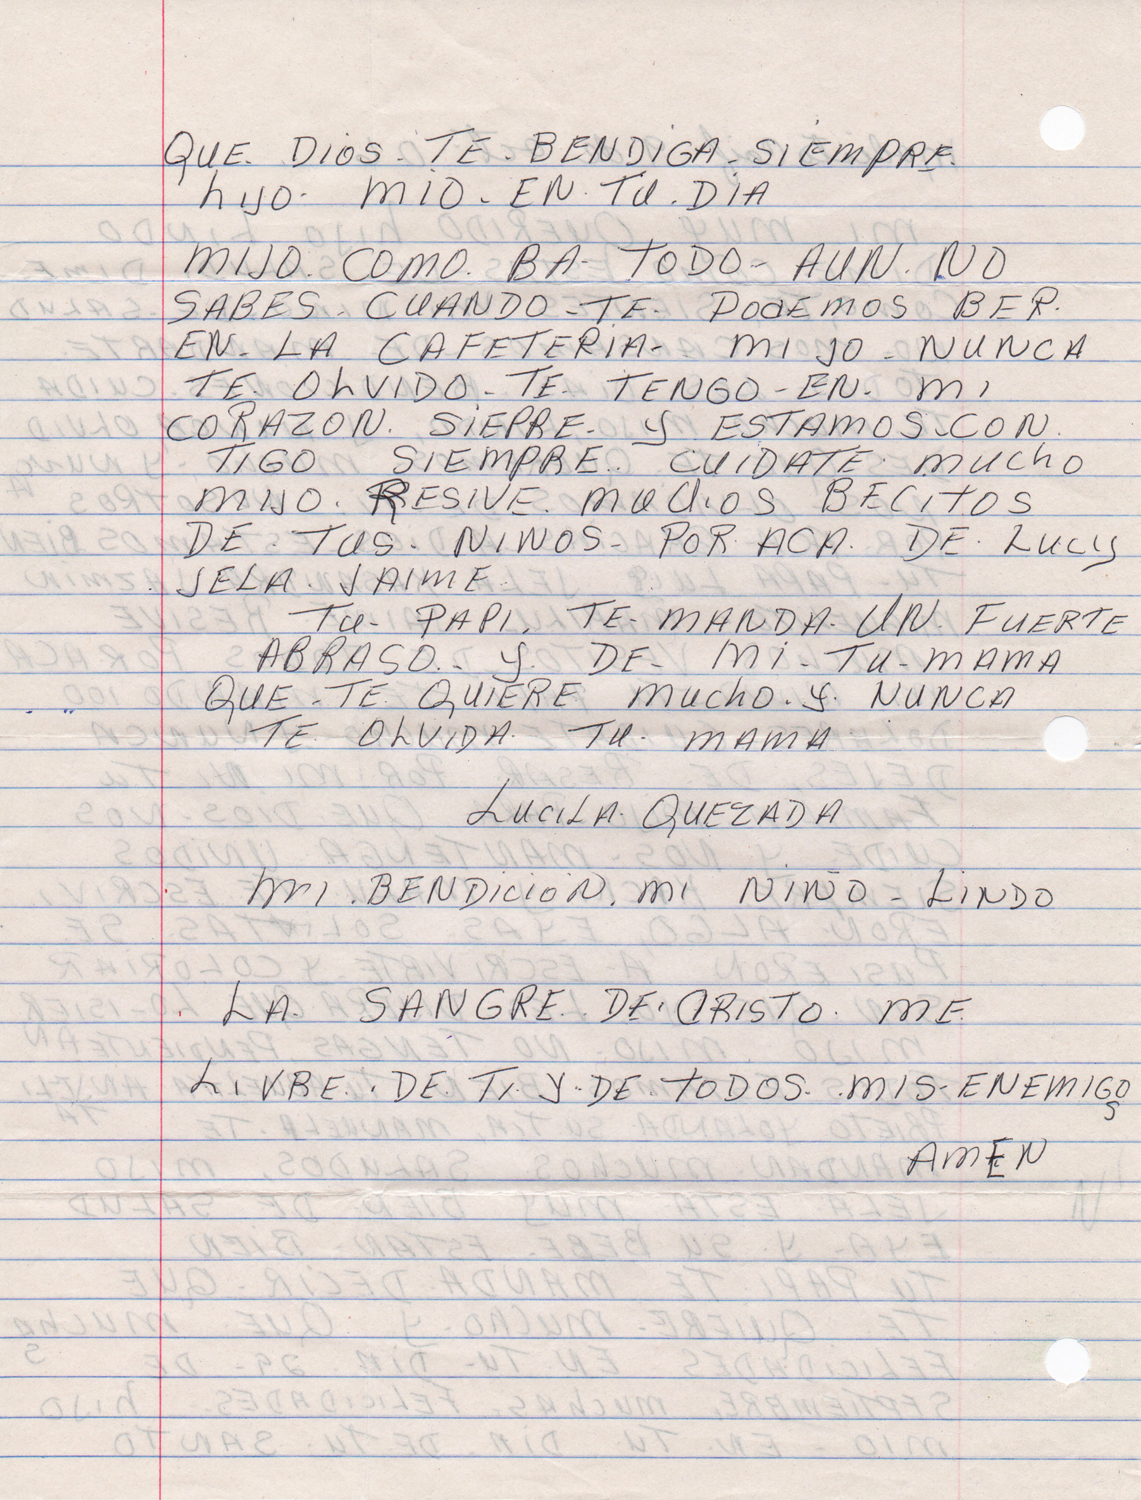 QUE. DIOS. TE. BENDIGA. SIEMPRE.
hIJO. MIO. EN. TU. DIA
MIJO. COMO. BA. TODO- AUN. NO
SABES. CUANDO - TE. PODEMOS BER.
EN. LA CAFETERIA- MIJO. NUNCA
TE. OLVIDO. TE. TENGO - EN. MI
CORAZON. SIEPRE. Y ESTAMOS. CON.
TIGO SIEMPRE. CUIDATE. MUCHO
MIJO. RESIVE. MUCHOS BECITOS
DE. TUS. NINOS. POR ACA. DE. LUCIS
JELA. JAIME.
TU- PAPI. TE. MANDA. UN. FUERTE
ABRASO. Y. DE- MI- TU- MAMA
QUE - TE. QUIERE MUCHO. Y. NUNCA
TE. OLVIDA. TU. MAMA
LUCILA. QUEZADA
MI. BENDICION. MI NIÑO - LINDO
LA. SANGRE. DE. CRISTO. ME.
LIVRE. DE. TI. Y. DE. TODOS. MIS. ENEMIGOS
AMEN